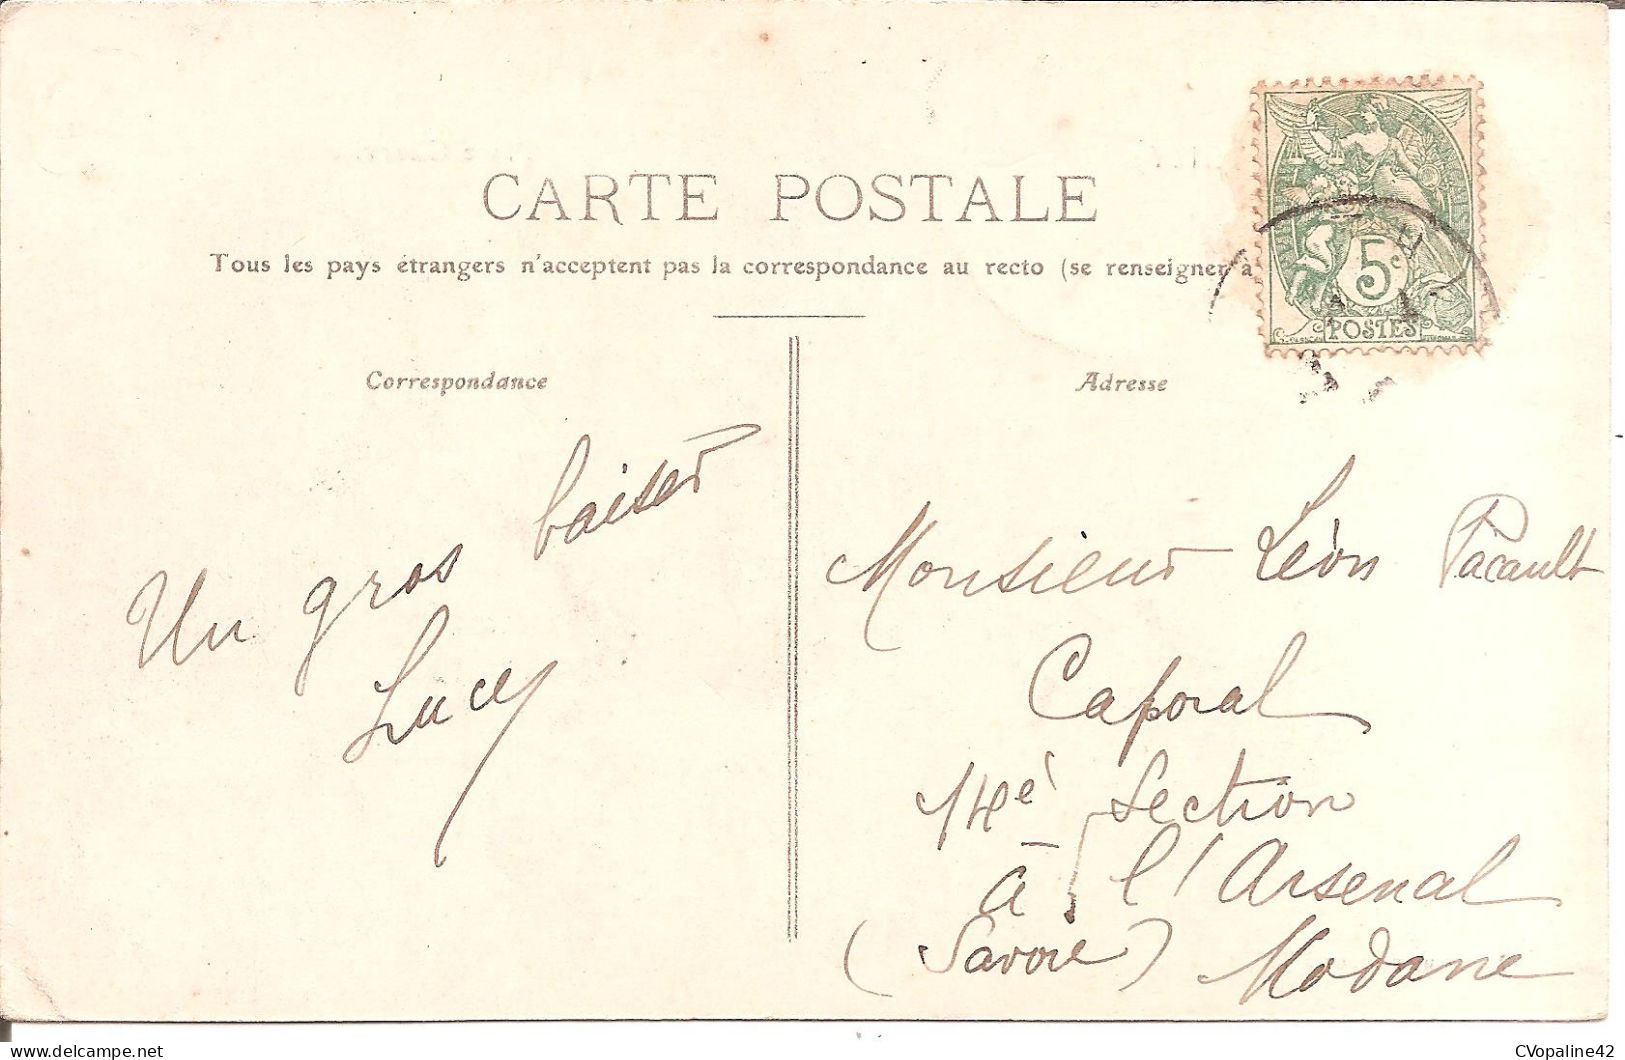 CARTE POSTALE
Tous les pays étrangers n'acceptent pas la correspondance au recto (se renseigner à
5c
POSTES
Correspondance
Un gros baiser
Lucy
Adresse
Monsieur Léon Pacault
Caporal
14e Section
à l'Arsenal
(Savoie) Modane
CVopaline42